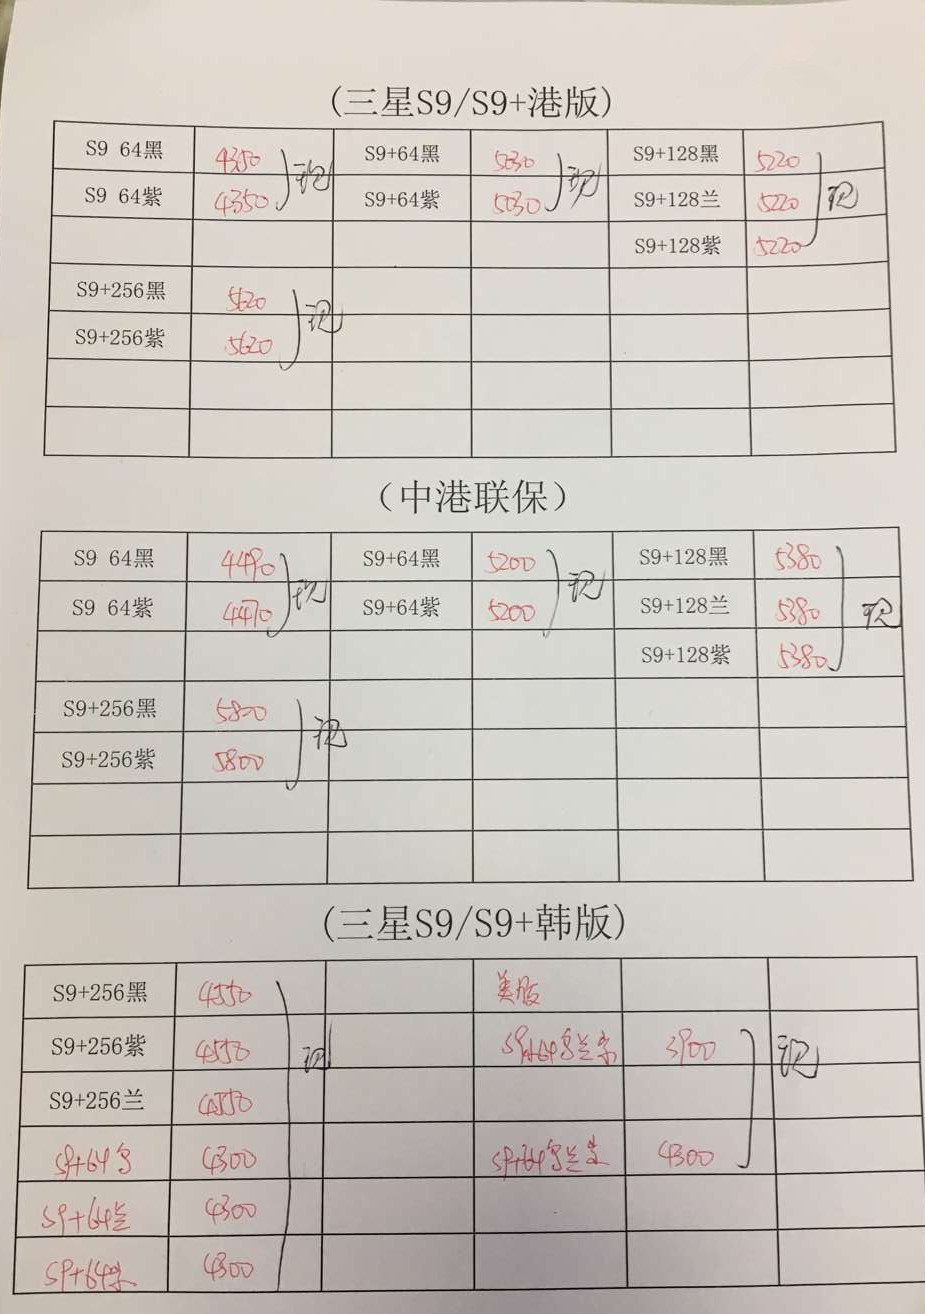 (三星S9/S9+港版)
S9 64黑 4350 现 S9+64黑 5030 现 S9+128黑 5220 现
S9 64紫 4350 S9+64紫 5030 S9+128兰 5220
S9+128紫 5220
S9+256黑 5620 现
S9+256紫 5620
（中港联保）
S9 64黑 4490 现 S9+64黑 5200 现 S9+128黑 5380 现
S9 64紫 4470 S9+64紫 5200 S9+128兰 5380
S9+128紫 5380
S9+256黑 5800 现
S9+256紫 5800
(三星S9/S9+韩版)
S9+256黑 4550 现 美版
S9+256紫 4550 3900 现
S9+256兰 4550
S9+64 4300 4300
S9+64兰 4300
S9+64 4300